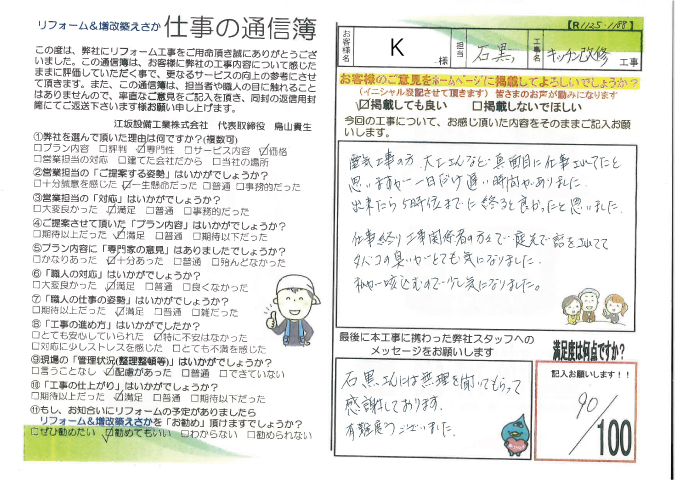 リフォーム&増改築えさか 仕事の通信簿
この度は、弊社にリフォーム工事をご用命頂き誠にありがとうござ
いました。この通信簿は、お客様に弊社の工事内容について感じた
ままに評価していただく事で、更なるサービスの向上の参考にさせ
て頂きます。また、この通信簿は、担当者や職人の目に触れること
はありませんので、率直なご意見をご記入を頂き、同封の返信用封
筒にてご返送下さいます様お願い申し上げます。
江坂設備工業株式会社 代表取締役 鳥山貴生
①弊社を選んで頂いた理由は何ですか?(複数可)
□プラン内容 □評判 ☑専門性 □サービス内容 ☑価格
□営業担当の対応 □建てた会社だから □当社の場所
②営業担当の「ご提案する姿勢」はいかがでしょうか?
□十分誠意を感じた ☑一生懸命だった □普通 □事務的だった
③営業担当の「対応」はいかがでしょうか?
□大変良かった ☑満足 □普通 □事務的だった
④ご提案させて頂いた「プラン内容」はいかがでしょうか?
□期待以上だった ☑満足 □普通 □期待以下だった
⑤プラン内容に「専門家の意見」はありましたでしょうか?
□かなりあった ☑十分あった □普通 □殆んどなかった
⑥「職人の対応」はいかがでしょうか?
□大変良かった ☑満足 □普通 □良くなかった
⑦「職人の仕事の姿勢」はいかがでしょうか?
□期待以上だった ☑満足 □普通 □雑だった
⑧「工事の進め方」はいかがでしたか?
□とても安心していられた ☑特に不安はなかった
□対応に少しストレスを感じた □とても不満を感じた
⑨現場の「管理状況(整理整頓等)」はいかがでしょうか?
□言うことなし ☑配慮があった □普通 □できていない
⑩「工事の仕上がり」はいかがでしょうか?
□期待以上だった ☑満足 □普通 □期待以下だった
⑪もし、お知合いにリフォームの予定がありましたら
リフォーム&増改築えさかを「お勧め」頂けますでしょうか?
□ぜひ勧めたい ☑勧めてもいい □わからない □勧められない
【R1125-1188】
お客様名 K 様 担当 石黒 工事名 キッチン改修 工事
お客様のご意見をホームページに掲載してよろしいでしょうか?
(イニシャル表記させて頂きます) 皆さまのお声が励みになります
☑掲載しても良い □掲載しないでほしい
今回の工事について、お感じ頂いた内容をそのままご記入お願
いします。
電気工事の方、大工さんなど、真面目に仕事されてたと
思いますが、一日だけ遅い時間がありました。
出来たら5時位までに終ると良かったと思いました。
仕事終り、工事関係者の方々で、庭先で話をされてて
タバコの臭いがとても気になりました。
私が咳込むので少し気になりました。
最後に本工事に携わった弊社スタッフへの
メッセージをお願いします
石黒さんには無理を聞いてもらって
感謝しております。
有難度うございました。
満足度は何点ですか?
記入お願いします!!
90
/100